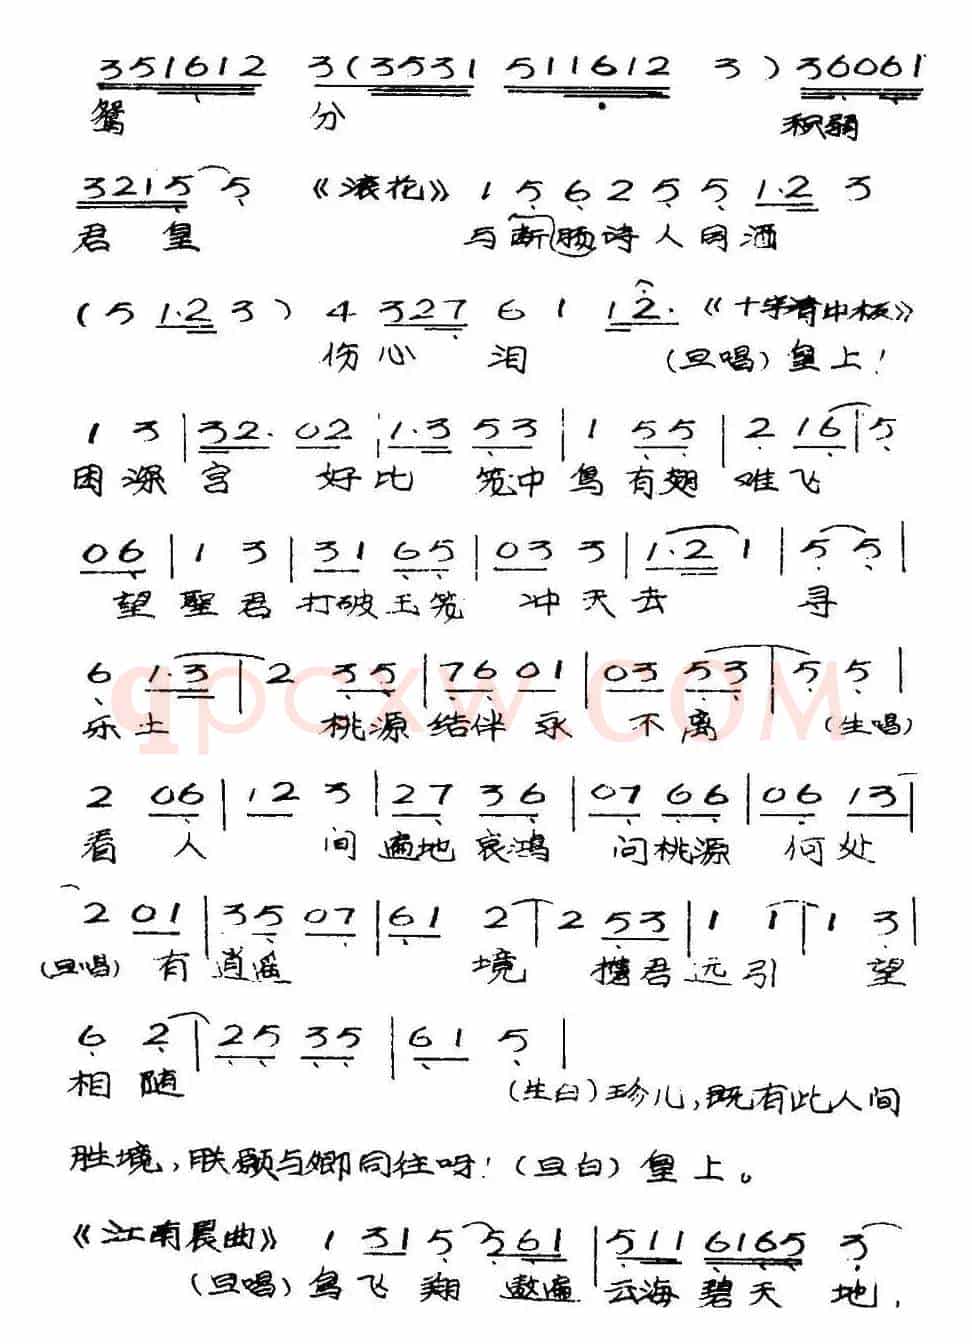 351612 3(3531 511612 3)36061
鸳 分 积弱
3215 5 《滚花》 1 5 6 2 5 5 1·2 3
君 皇 与断肠诗人同洒
(5 1·2 3) 4 327 6 1 1 2· 《十字清中板》
伤心 泪 (旦唱)皇上!
1 3 | 32· 02 | 1·3 53 | 1 55 | 2 16 | 5
困深宫 好比 笼中鸟有翅难飞
06 | 1 3 | 31 65 | 03 3 | 1·2 1 | 5 5 |
望聖君打破玉笼 冲天去 寻
6 1·3 | 2 35 | 76 01 | 03 53 | 5 5 |
乐土 桃源结伴永 不离 (生唱)
qpcxw.com
2 06 | 12 3 | 27 36 | 07 66 | 06 13 |
看 人 间遍地哀鸿 问桃源 何处
2 01 | 35 07 | 61 2 | 2 53 | 1 1 | 1 3 |
(旦唱) 有逍遥 境 携君远引 望
6 2 | 25 35 | 61 5 |
相随 (生白)珍儿,既有此人间
胜境,朕愿与卿同往呀!(旦白)皇上。
《江南晨曲》 1 31 5 561 | 511 6165 3
(旦唱)鸟飞翔 遨遍 云海碧天 地,